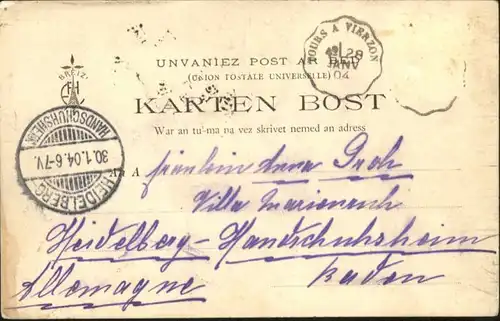 UNVANIEZ POST AR BED
(UNION POSTALE UNIVERSELLE)
TOURS A VIERZON
28
JANV
04
BREIZ
KARTEN BOST
War an tu-ma na vez skrivet nemed an adress
HEIDELBERG
30.1.04.6-7V.
HANDSCHUHSHEIM
A Fräulein Anna Groh
Villa Marieneck
Heidelberg-Handschuhsheim
Baden
Allemagne